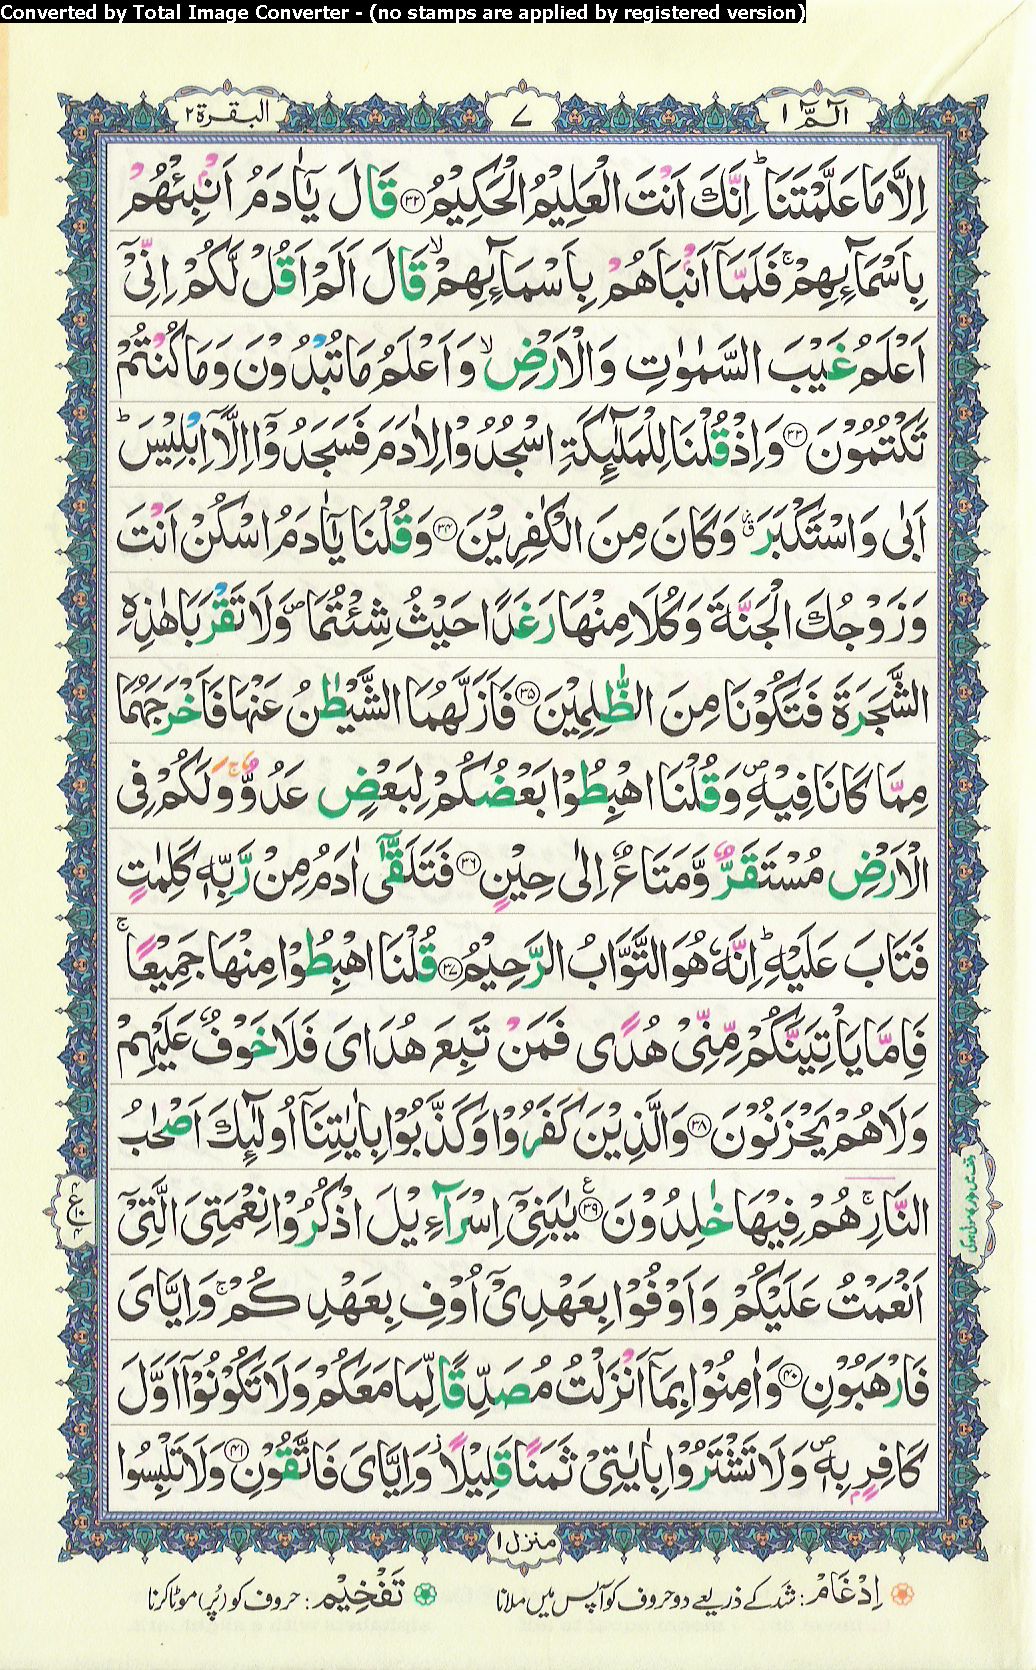 Converted by Total Image Converter - (no stamps are applied by registered version)
الٓمّٓ ۱
۷
البقرة ۲
اِلَّا مَا عَلَّمْتَنَا ؕ اِنَّكَ اَنْتَ الْعَلِیْمُ الْحَكِیْمُ ﴿۳۲﴾ قَالَ یٰۤاٰدَمُ اَنْۢبِئْهُمْ
بِاَسْمَآىِٕهِمْ ۚ فَلَمَّاۤ اَنْۢبَاَهُمْ بِاَسْمَآىِٕهِمْ ۙ قَالَ اَلَمْ اَقُلْ لَّكُمْ اِنِّیْۤ
اَعْلَمُ غَیْبَ السَّمٰوٰتِ وَالْاَرْضِ ۙ وَاَعْلَمُ مَا تُبْدُوْنَ وَمَا كُنْتُمْ
تَكْتُمُوْنَ ﴿۳۳﴾ وَاِذْ قُلْنَا لِلْمَلٰٓىِٕكَةِ اسْجُدُوْا لِاٰدَمَ فَسَجَدُوْۤا اِلَّاۤ اِبْلِیْسَ ؕ
اَبٰی وَاسْتَكْبَرَ ۗ وَكَانَ مِنَ الْكٰفِرِیْنَ ﴿۳۴﴾ وَقُلْنَا یٰۤاٰدَمُ اسْكُنْ اَنْتَ
وَزَوْجُكَ الْجَنَّةَ وَكُلَا مِنْهَا رَغَدًا حَیْثُ شِئْتُمَا ۪ وَلَا تَقْرَبَا هٰذِهِ
الشَّجَرَةَ فَتَكُوْنَا مِنَ الظّٰلِمِیْنَ ﴿۳۵﴾ فَاَزَلَّهُمَا الشَّیْطٰنُ عَنْهَا فَاَخْرَجَهُمَا
مِمَّا كَانَا فِیْهِ ۪ وَقُلْنَا اهْبِطُوْا بَعْضُكُمْ لِبَعْضٍ عَدُوٌّ ۚ وَلَكُمْ فِی
الْاَرْضِ مُسْتَقَرٌّ وَّمَتَاعٌ اِلٰی حِیْنٍ ﴿۳۶﴾ فَتَلَقّٰۤی اٰدَمُ مِنْ رَّبِّهٖ كَلِمٰتٍ
فَتَابَ عَلَیْهِ ؕ اِنَّهٗ هُوَ التَّوَّابُ الرَّحِیْمُ ﴿۳۷﴾ قُلْنَا اهْبِطُوْا مِنْهَا جَمِیْعًا ۚ
فَاِمَّا یَاْتِیَنَّكُمْ مِّنِّیْ هُدًی فَمَنْ تَبِعَ هُدَایَ فَلَا خَوْفٌ عَلَیْهِمْ
وَلَا هُمْ یَحْزَنُوْنَ ﴿۳۸﴾ وَالَّذِیْنَ كَفَرُوْا وَكَذَّبُوْا بِاٰیٰتِنَاۤ اُولٰٓىِٕكَ اَصْحٰبُ
النَّارِ ۚ هُمْ فِیْهَا خٰلِدُوْنَ ﴿۳۹﴾ ع یٰبَنِیْۤ اِسْرَآءِیْلَ اذْكُرُوْا نِعْمَتِیَ الَّتِیْۤ
اَنْعَمْتُ عَلَیْكُمْ وَاَوْفُوْا بِعَهْدِیْۤ اُوْفِ بِعَهْدِكُمْ ۚ وَاِیَّایَ
فَارْهَبُوْنِ ﴿۴۰﴾ وَاٰمِنُوْا بِمَاۤ اَنْزَلْتُ مُصَدِّقًا لِّمَا مَعَكُمْ وَلَا تَكُوْنُوْۤا اَوَّلَ
كَافِرٍۭ بِهٖ ۪ وَلَا تَشْتَرُوْا بِاٰیٰتِیْ ثَمَنًا قَلِیْلًا ؗ وَاِیَّایَ فَاتَّقُوْنِ ﴿۴۱﴾ وَلَا تَلْبِسُوا
منزل ۱
اِدْغَامْ: شد کے ذریعے دو حروف کو آپس میں ملانا
تَفْخِیْم: حروف کو (پُر) موٹا کرنا